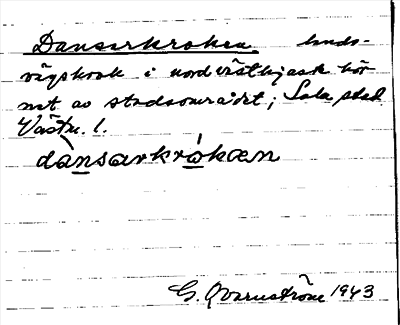 Dansarkroken lands-
vägskrok i nordvästligaste hör-
net av stadsområdet; Sala stad
Västm. l.
dansarkrokæn
G. Qvarnström 1943